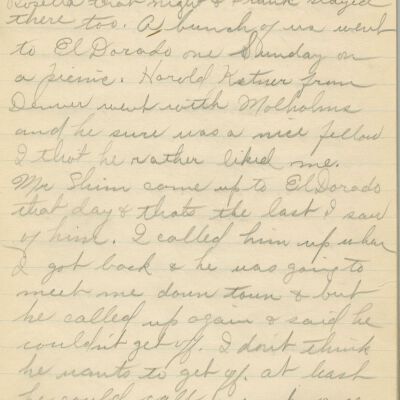 Rosella that night & Frank stayed
there too. A bunch of us went
to El Dorado one Sunday on
a picnic. Harold Kstner from
Denver went with Molholms
and he sure was a nice fellow
I thot he rather liked me.
Mr Shim came up to El Dorado
that day & thats the last I saw
of him. I called him up when
I got back & he was going to
meet me down town & but
he called up again & said he
couldn't get off. I don't think
he wants to get off. at least
he could call